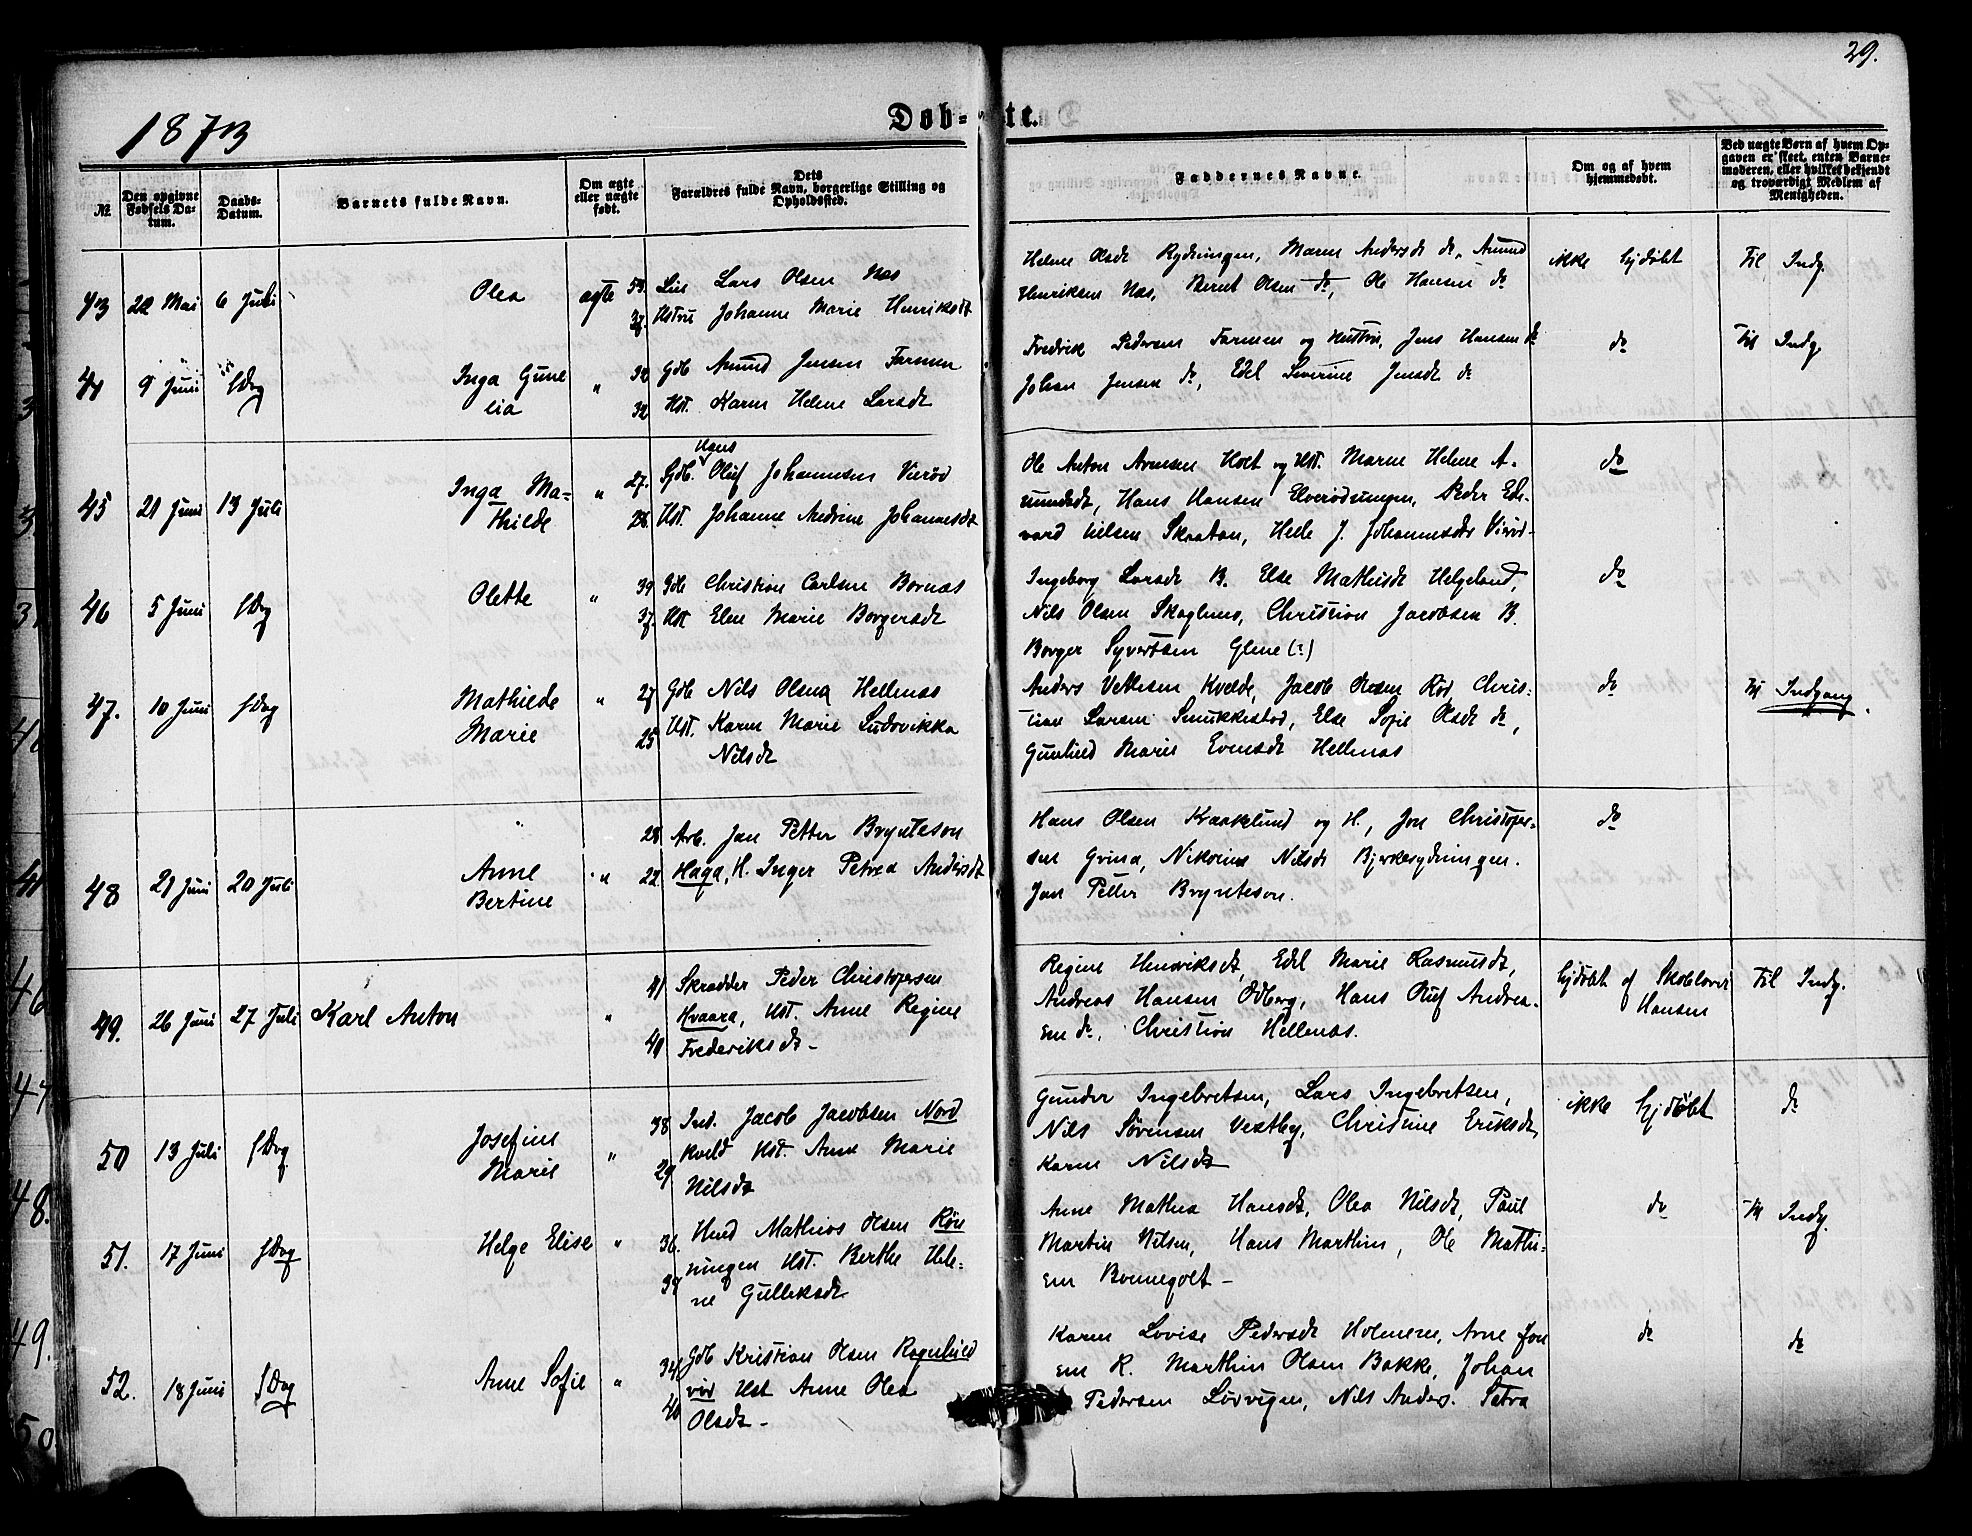 29.
1873
Døb-te.
№
Den opgivne Fødsels Datum.
Daabs-Datum.
Barnets fulde Navn.
Om ægte eller uægte født.
Dets Forældres fulde Navn, borgerlige Stilling og Opholdssted.
Faddernes Navne.
Om og af hvem hjemmedøbt.
Ved uægte Børn af hvem Opgaven er skeet, enten Barnemoderen, eller hvilket bekjendt og troværdigt Medlem af Menigheden.
43 22 Mai 6 Juli Olea ægte
53 Lars Olsen Næs
37. Ustru Johanne Marie Henriksdt
Helene Olsdt Rydningen, Maren Andersdt do, Amund
Henriksen Næs, Bernt Olsen do, Ole Hansen do
ikke hjdøbt Til Indg.
44 9 Juni s Dag Inga Gune
lia "
32 Gdb Amund Jensen Farmen
32 Ust. Karen Helene Larsdt
Fredrik Pedersen Farmen og Hustru, Jens Hansen do
Johan Jensen do, Edel Severine Jensdt do
do Til Indg.
45 21 Juni 13 Juli Inga Ma-
thilde "
Hans
27. Gdb. Oluf Johannesen Virød
Ust. Johanne Andrine Johannesdt
Ole Anton Arnesen Holt og Ust. Maren Helene A-
mundsdt, Hans Hansen Elverødningen, Peder Ed-
vard Nielsen Skaatan, Helle J. Johannesdt Virød-
do
46 5 Juni s Dag Olette "
39 Gdb Christian Carlsen Bornæs
37. Ust Elen Marie Borgersdt
Ingeborg Larsdt B. Else Mathisdt Helgeland,
Nils Olsen Skoglund, Christian Jacobsen B.
Borger Syvertsen Glene (?)
do
47. 10 Juni s Dag Mathilde
Marie "
27 Gdb Nils Olsen Hellenæs
25 Ust. Karen Marie Ludovikka
Nilsdt
Anders Vetlesen Kvelde, Jacob Olesen Rød, Chris-
tian Larsen Smukkestad, Else Sofie Olsdt do,
Gunhild Marie Evensdt Hellenæs
do Til Indgang.
48 21 Juni 20 Juli Anne
Bertine "
28 Arb. Jan Petter Brynteson
22. Haga, H. Inger Petrea Andersdt
Hans Olsen Kraaklund og H., Jon Christofer-
sen Grina, Nikoline Nilsdt Bjerkerydningen.
Jan Petter Brynteson.
do
49. 26 Juni 27 Juli Karl Anton "
41 Skrædder Peder Christofersen
Kvaara, Ust. Anne Regine
40 Frederiksdt-
Regine Henriksdt, Edel Marie Rasmusdt,
Andreas Hansen Odberg, Hans Oluf Andrea-
sen do, Christian Hellenæs.
hjdøbt af Skolelærer
Hansen
Til Indg.
50 13 Juli s Dag Josefine
Marie "
38 Ind. Jacob Jacobsen Nord
kveld Ust. Anne Marie
29 Nilsdt
Gunder Ingebretsen, Lars Ingebretsen,
Nils Sørensen Vestby, Christine Eriksdt,
Karen Nilsdt
ikke hjdøbt do
51. 17 Juni s Dag Helge Elise "
36. Mathias Olsen Røn
ningen Ust. Berthe Hele-
39 ne Gulliksdt
Anne Mathea Hansdt, Olea Nilsdt, Paul
Martin Nilsen, Hans Marthin, Ole Mathi-
sen Bonnegolt -
do Til Indg.
52. 18 Juni s Dag Anne Sofie "
34 Gdb Kristian Olsen Ragnhild
rød Ust Anne Olea
40 Olsdt -
Karen Lovise Pedersdt Holmene, Arne Jon
sen R. Marthin Olsen Bakke, Johan
Pedersen Løvvigen, Nils Anders. Sætra
do do